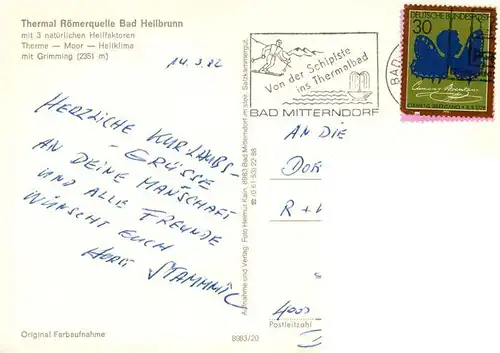 Thermal Römerquelle Bad Heilbrunn
mit 3 natürlichen Heilfaktoren
Therme — Moor — Heilklima
mit Grimming (2351 m)
14.3.82
HERZLICHE KURLAUBS-
GRÜSSE
AN DEINE MANSCHAFT
UND ALLE FREUNDE
WÜNSCHT EUCH
HORST STAMMNIC
Original Farbaufnahme
8983/20
Aufnahme und Verlag: Foto Helmut Kain, 8983 Bad Mitterndorf im steir. Salzkammergut
☎ (0 61 53) 22 88
Von der Schipiste
ins Thermalbad
BAD MITTERNDORF
BAD
DEUTSCHE BUNDESPOST
30
Clemens Brentano
CLEMENS BRENTANO • 9.9.1778
AN DIE
DOK
R + V
4000
Postleitzahl